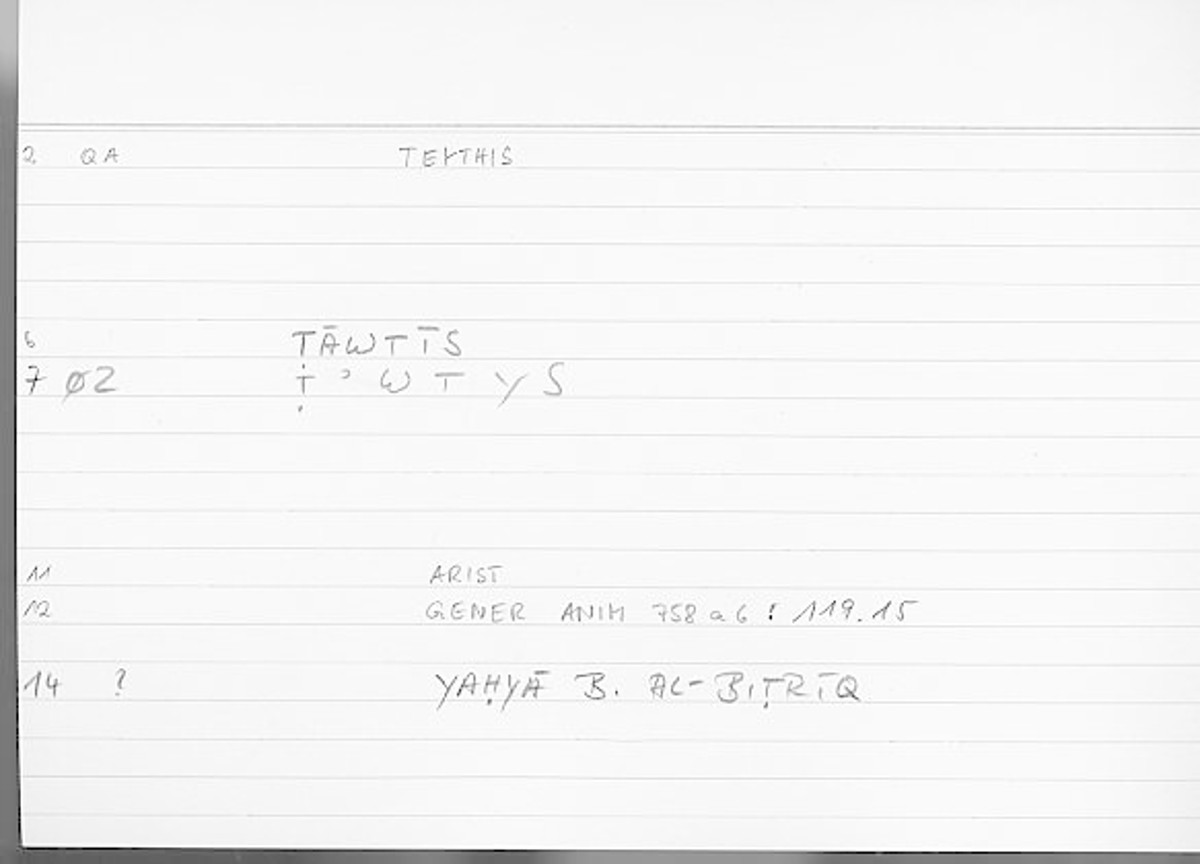 2 QA TEYTHIS
6 TĀWTĪS
7 Ø2 Ṭ ʾ W T Y S
11 ARIST
12 GENER ANIM 758 a 6 : 119.15
14 ? YAḤYĀ B. AL-BIṬRĪQ